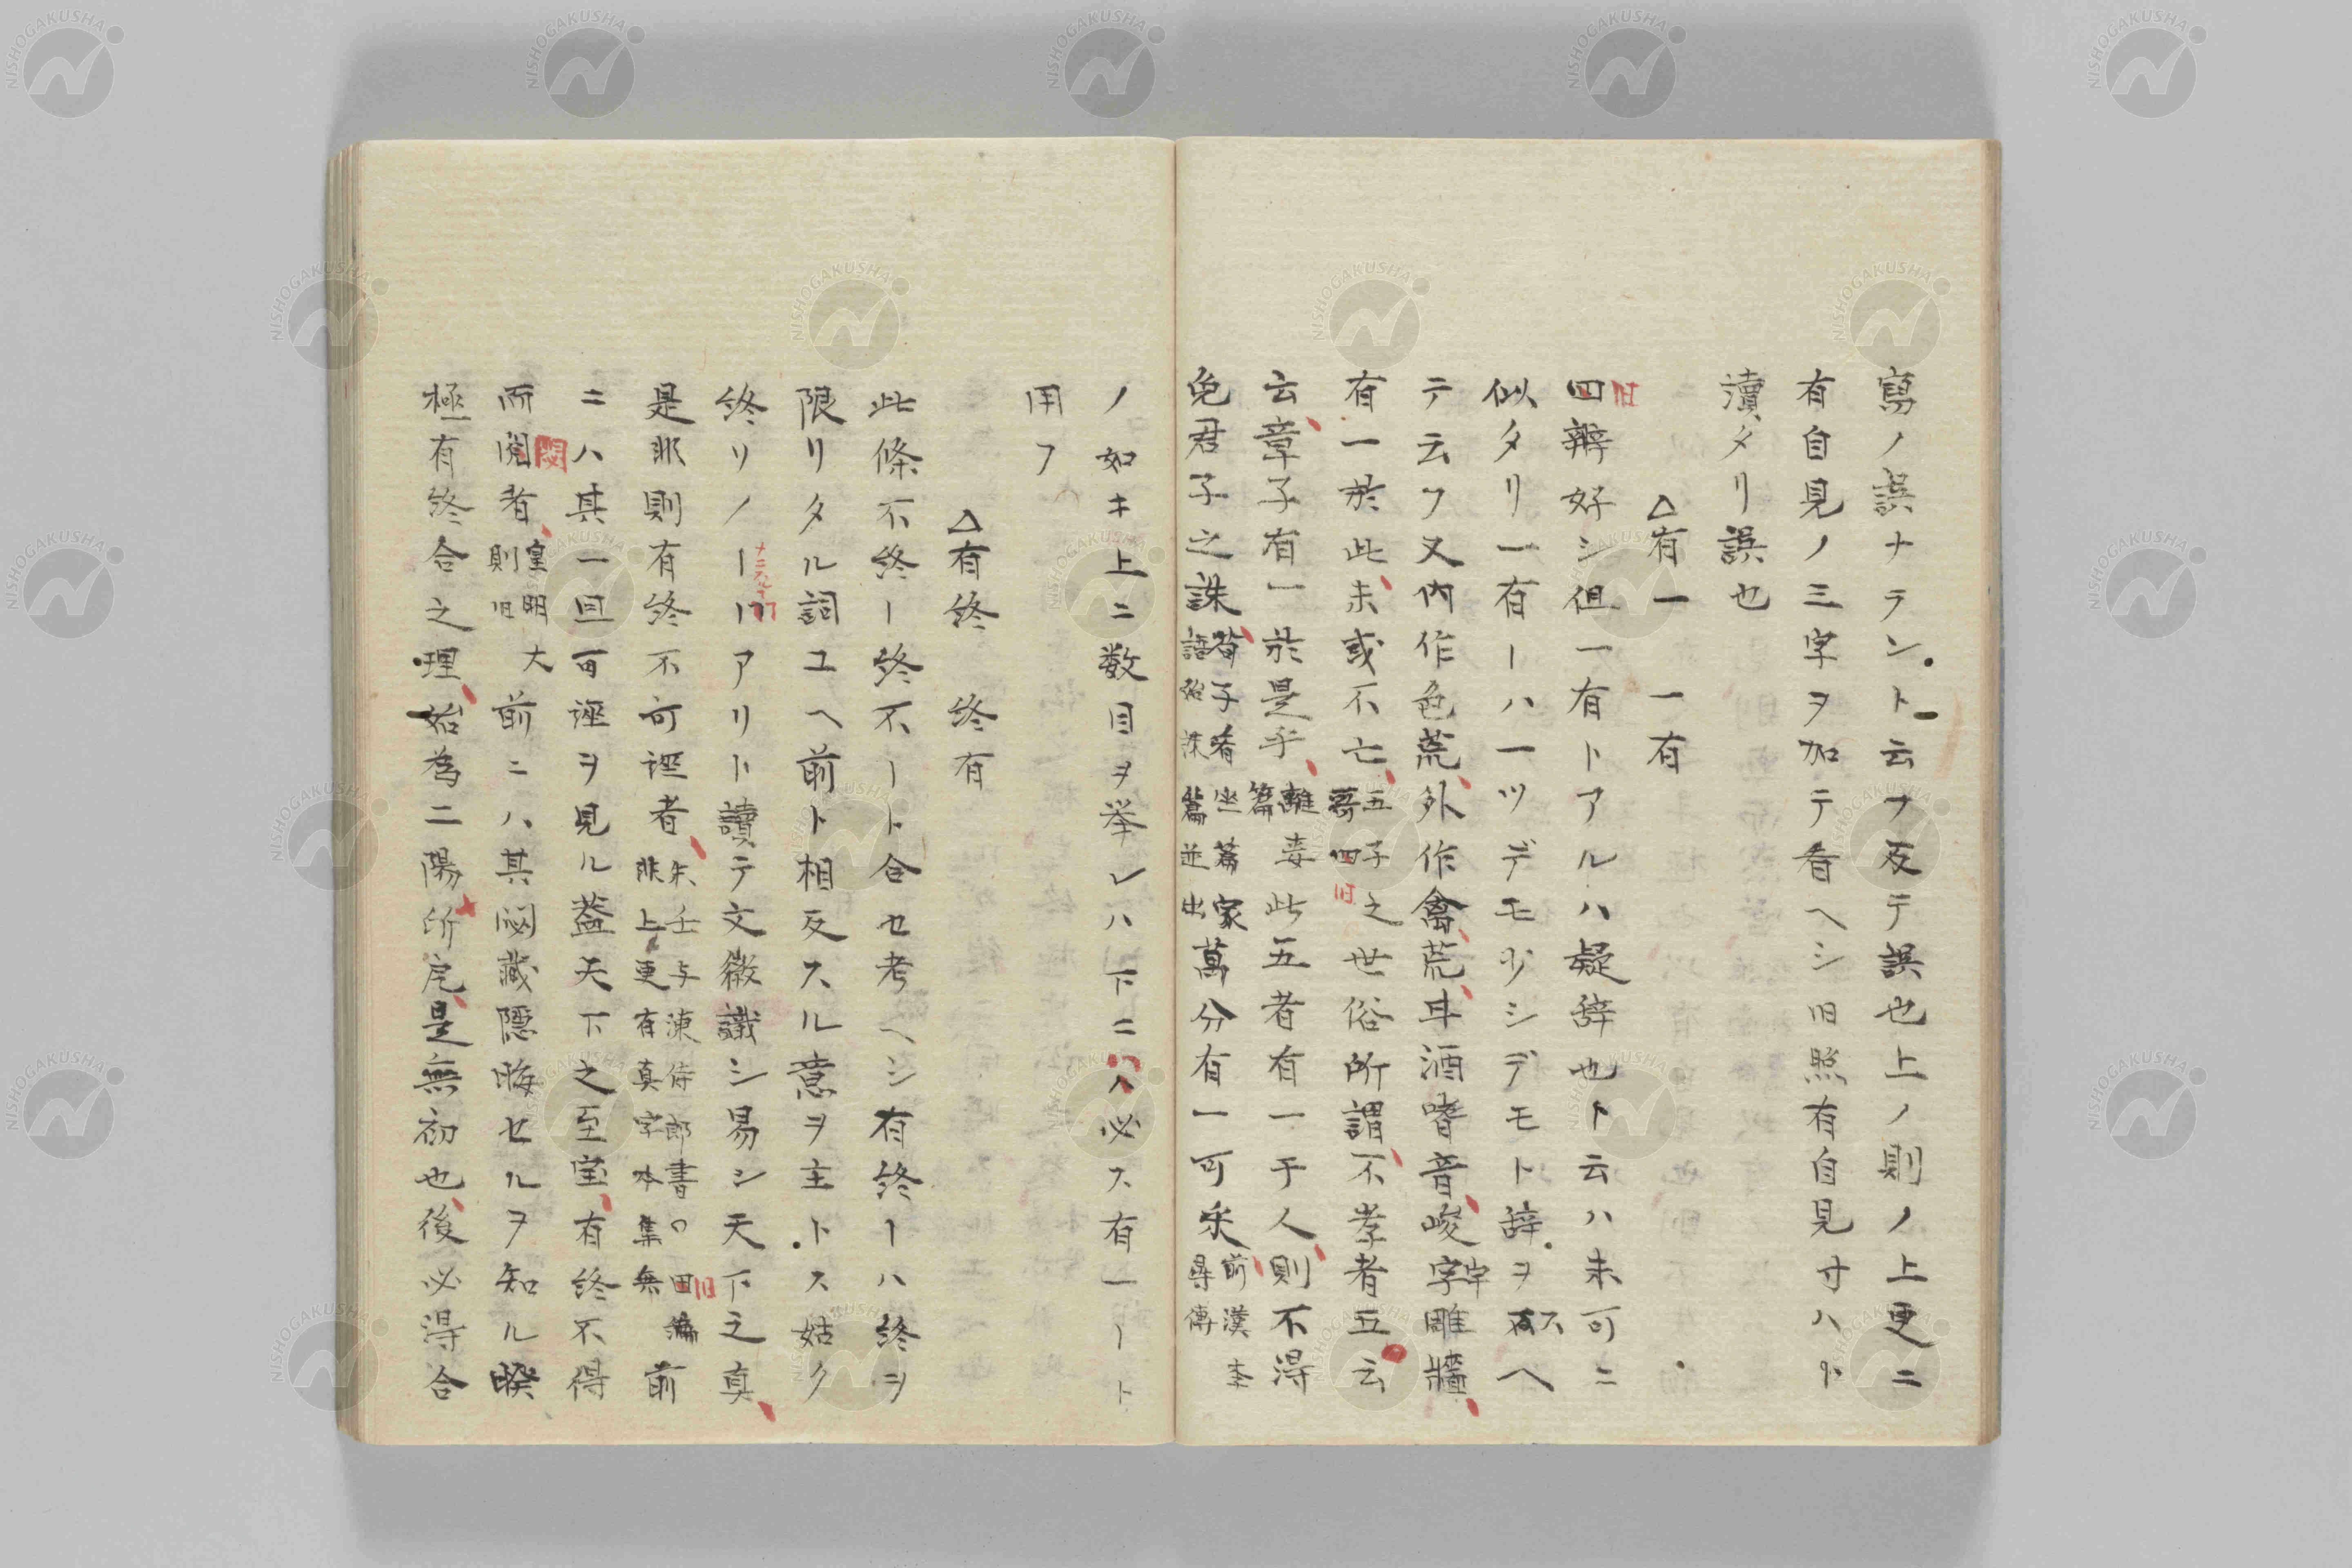 寫ノ誤ナラント云フ反テ誤也上ノ則ノ上更ニ
有自見ノ三字ヲ加テ看ヘシ旧照有自見寸ハト
瀆タリ誤也
△有一 一有
四辨好シ但一有トアルハ疑辞也ト云ハ未可ニ
旧
似タリ一有ーハ一ツデモ少シデモト辞ヲ
テ云フ又内作色荒外作禽荒甘酒嗜音峻字雕牆
有一於此未或不亡五子之
謌四
旧
世俗所謂不孝者五云
云章子有一於是乎離婁
篇
此五者有一于人則不得
免君子之誅荀子宥坐篇家
語始誅篇並出
萬分有一可乎前漢李
尋傳
ノ如キ上ニ数目ヲ挙レハ下ニ必ス有一ート
用フ
△有終 終有
此條不終ー終不ート合セ考ヘシ有終ーハ終ヲ
限リタル詞ユヘ前ト相反スル意ヲ主トス姑ク
終リノーアリト讀テ文徴識シ易シ天下之真
是非則有終不可誣者朱壬与湅侍郎書○四編
非上更有真字本集無
旧
前
ニハ其一旦可誣ヲ見ル蓋天下之至宝有終不得
而閟者皇明大
則旧
前ニハ其閟藏隠晦セルヲ知ル暌
極有終合之理始為二陽所戹是無初也後必得合
NISHOGAKUSHA